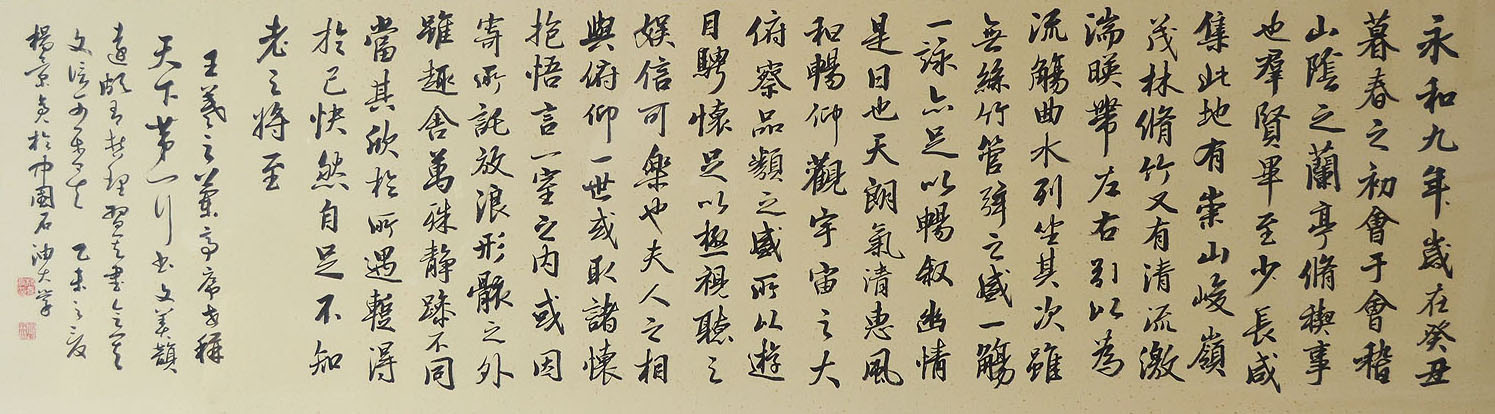 永和九年歲在癸丑
暮春之初會于會稽
山陰之蘭亭脩稧事
也羣賢畢至少長咸
集此地有崇山峻嶺
茂林脩竹又有清流激
湍暎帶左右引以為
流觴曲水列坐其次雖
無絲竹管弦之盛一觴
一詠亦足以暢叙幽情
是日也天朗氣清惠風
和暢仰觀宇宙之大
俯察品類之盛所以遊
目騁懷足以極視聽之
娛信可樂也夫人之相
與俯仰一世或取諸懷
抱悟言一室之內或因
寄所託放浪形骸之外
雖趣舍萬殊静躁不同
當其欣於所遇暫得
於己快然自足不知
老之將至
王羲之蘭亭序世稱
天下第一行書文美韻
遠頗有哲理習其書會其
文信可樂矣 乙未之夏
楊景於中國石油大学